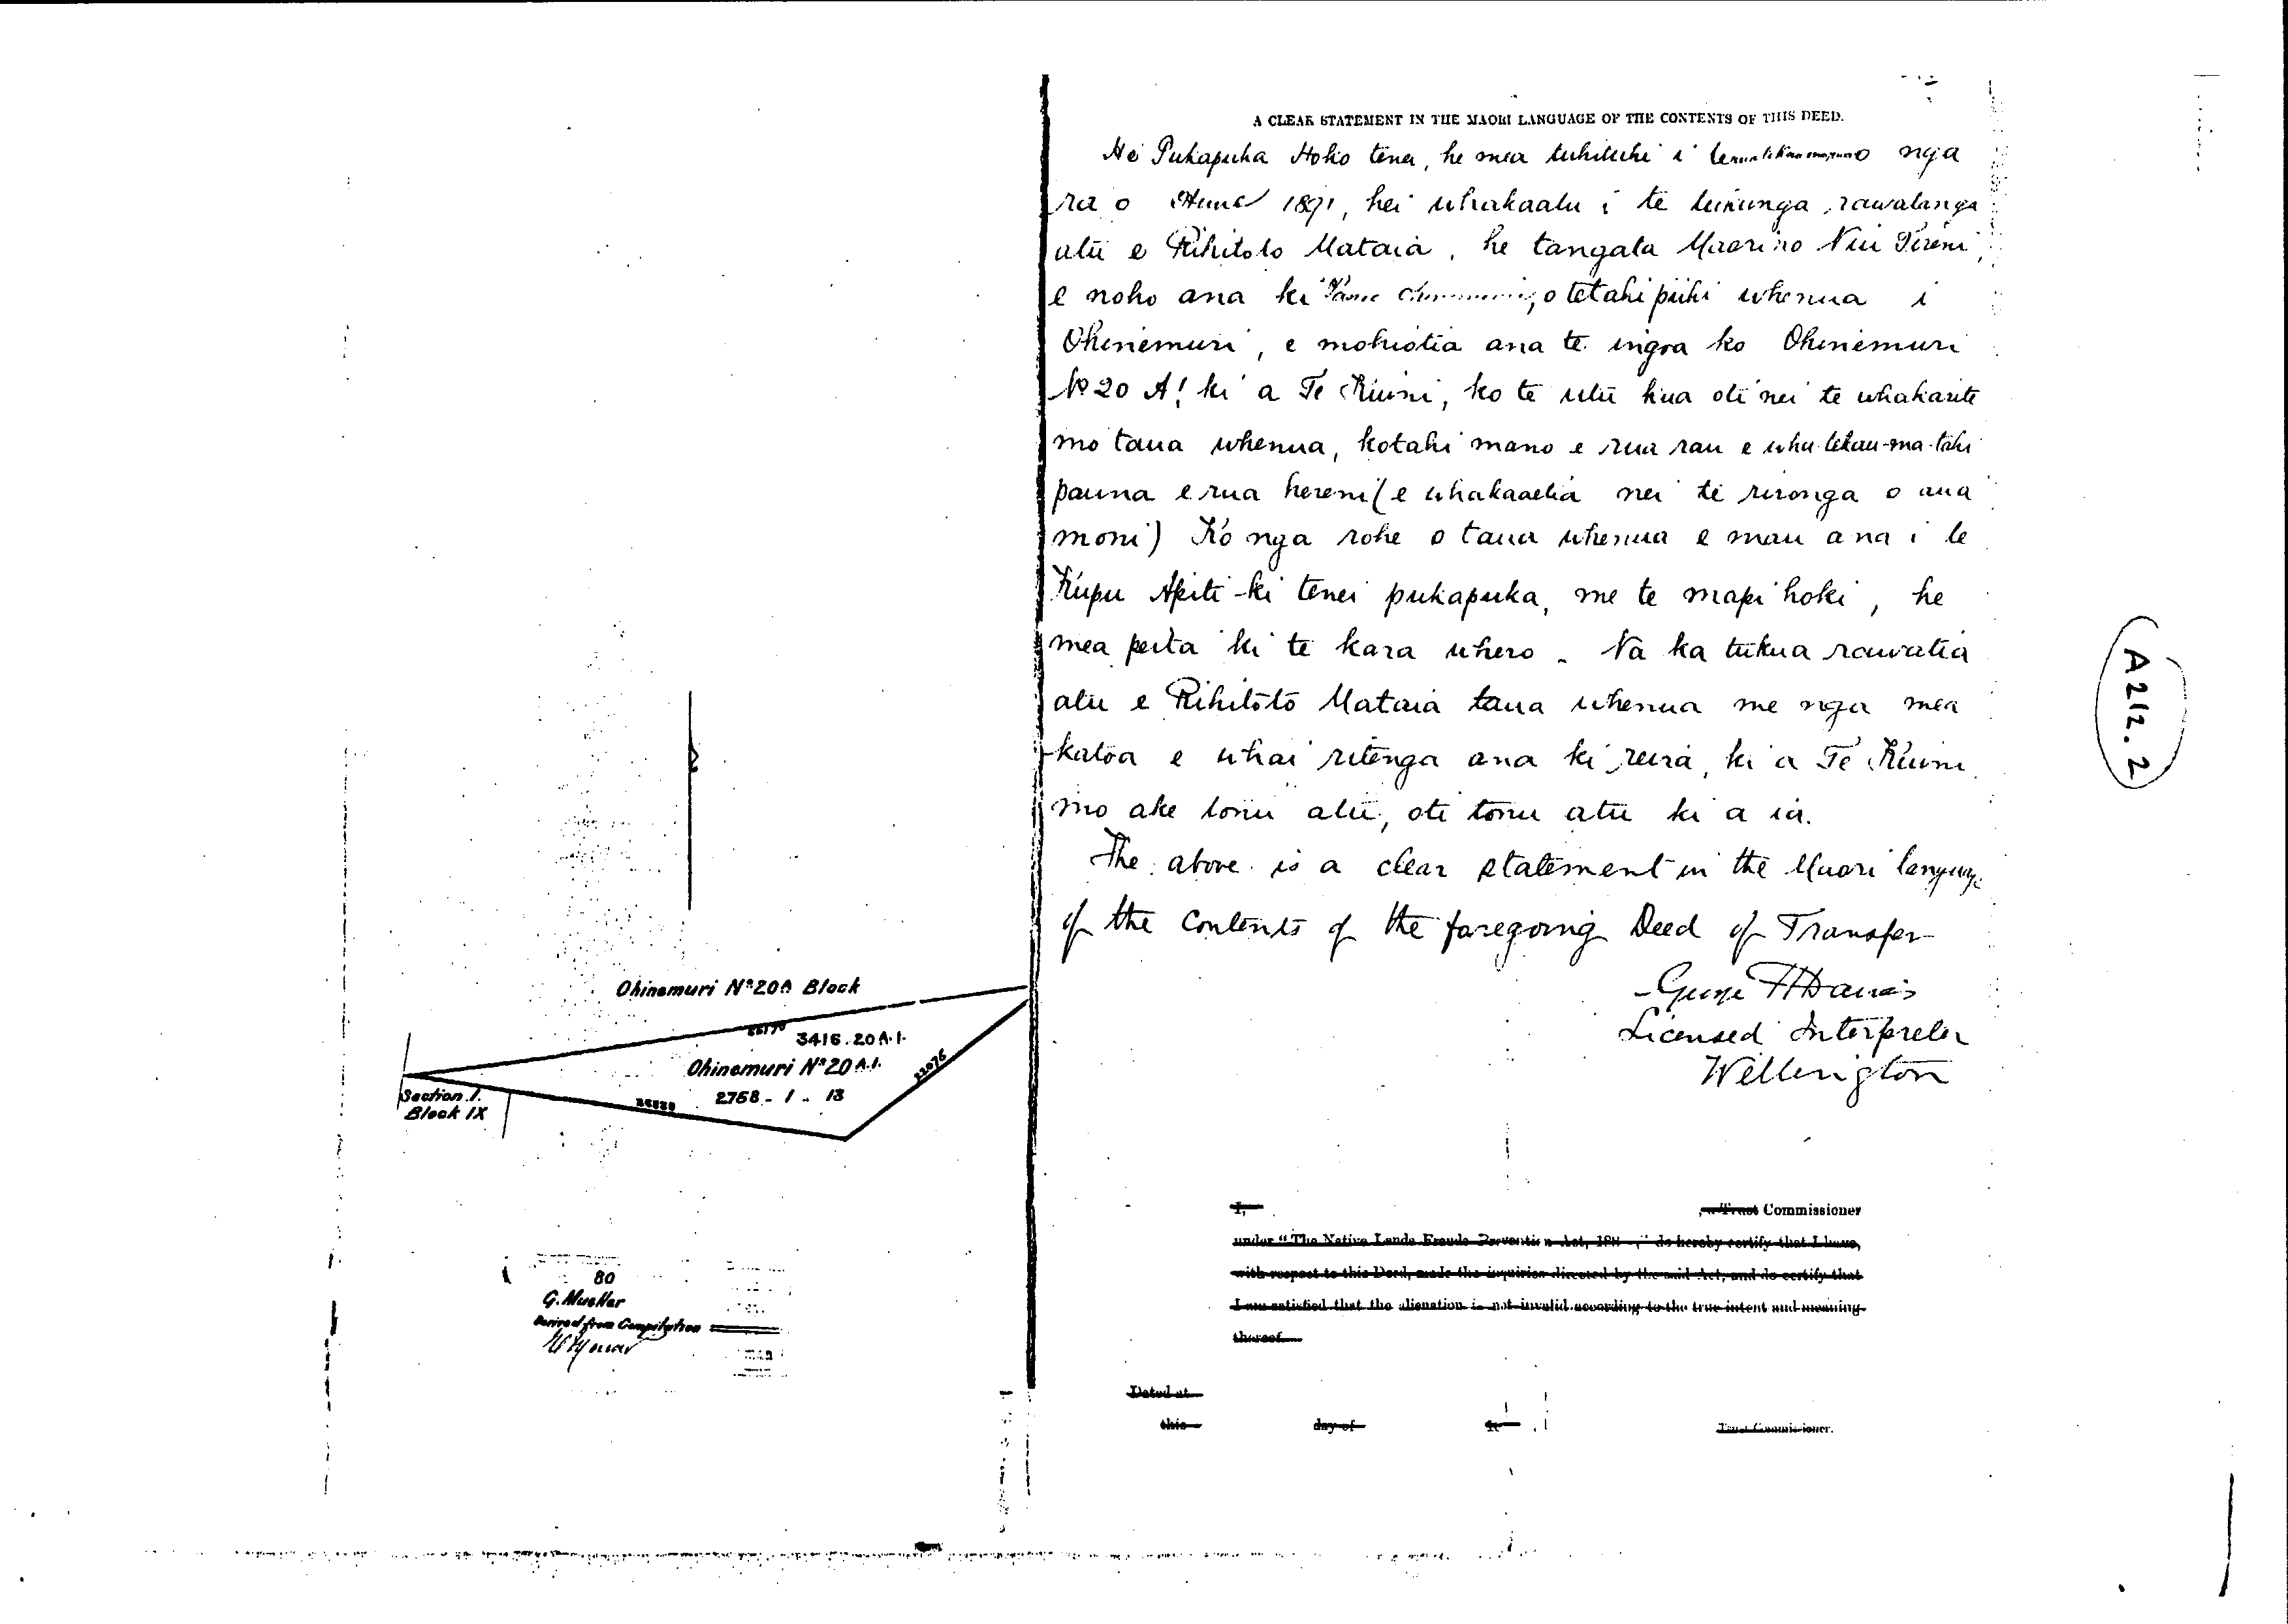 A CLEAR STATEMENT IN THE MAORI LANGUAGE OF THE CONTENTS OF THIS DEED.
He Pukapuka Hoko tenei, he mea tuhituhi i te nga
ra o Hune 1891, hei whakaatu i te tukunga rawatanga
atu e Rihitoto Mataia, he tangata Maori no Niu Tireni,
e noho ana ki o tetahi piihi whenua i
Ohinemuri, e mohiotia ana te ingoa ko Ohinemuri
No 20 A1 ki a Te Kuini, ko te utu kua oti nei te whakarite
mo taua whenua, kotahi mano e rua rau e wha tekau-ma-tahi
pauna e rua hereni (e whakaaetia nei te rironga o aua
moni) Ko nga rohe o taua whenua e mau ana i te
Kupu Apiti ki tenei pukapuka, me te mapi hoki, he
mea peita ki te kara whero. Na ka tukua rawatia
atu e Rihitoto Mataia taua whenua me nga mea
katoa e whai ritenga ana ki reira, ki a Te Kuini
mo ake tonu atu, oti tonu atu ki a ia.
The above is a clear statement in the Maori language
of the contents of the foregoing Deed of Transfer
George H Davis
Licensed Interpreter
Wellington
Ohinemuri No 20A Block
3416.20A.1.
Ohinemuri No 20A.1.
2768 - 1 - 13
Section 1.
Block IX
80
G. Mueller
Derived from Compilation
I, a Trust Commissioner
under "The Native Lands Frauds Prevention Act, 188 ," do hereby certify that I have,
with respect to this Deed, made the inquiries directed by the said Act, and do certify that
I am satisfied that the alienation is not invalid according to the true intent and meaning
thereof.
Dated at
this day of
Trust Commissioner.
A212.2